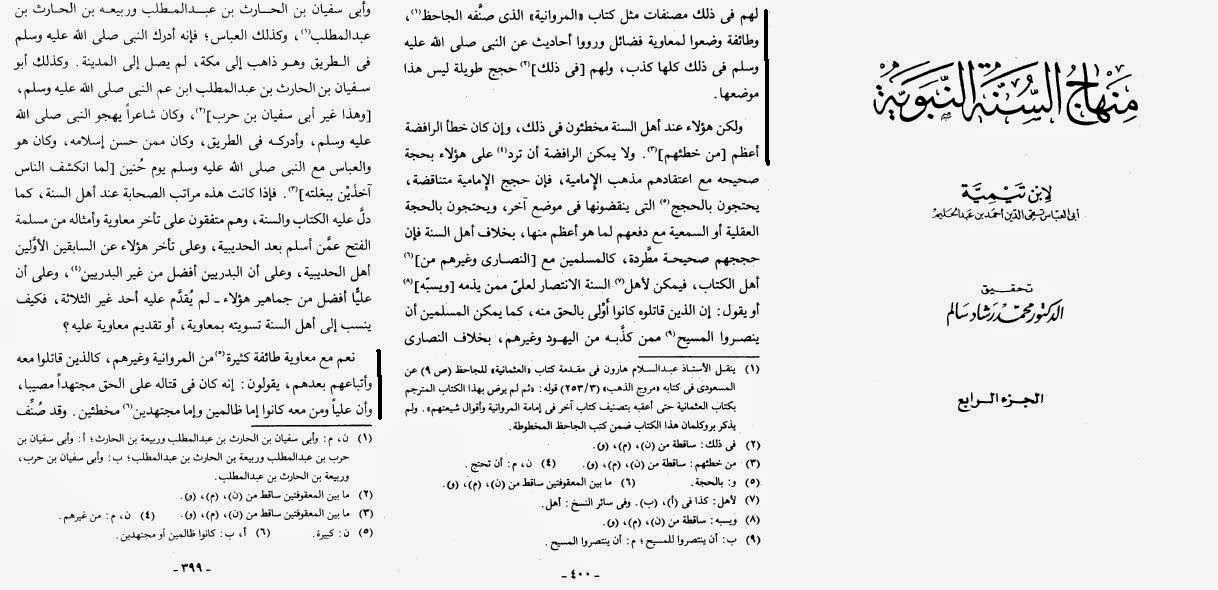 منهاج السنة النبوية
لابن تيمية
أبي العباس تقي الدين أحمد بن عبد الحليم
تحقيق
الدكتور محمد رشاد سالم
الجزء الرابع
وأبى سفيان بن الحارث بن عبدالمطلب وربيعه بن الحارث بن
عبدالمطلب(١)، وكذلك العباس؛ فإنه أدرك النبى صلى الله عليه وسلم
فى الطريق وهو ذاهب إلى مكة، لم يصل إلى المدينة. وكذلك أبو
سفيان بن الحارث بن عبدالمطلب ابن عم النبى صلى الله عليه وسلم،
[وهذا غير أبى سفيان بن حرب](٢)، وكان شاعراً يهجو النبى صلى الله
عليه وسلم، وأدركه فى الطريق، وكان ممن حسن إسلامه، وكان هو
والعباس مع النبى صلى الله عليه وسلم يوم حُنين [لما انكشف الناس
آخذَيْن ببغلته](٣). فإذا كانت هذه مراتب الصحابة عند أهل السنة، كما
دلَّ عليه الكتاب والسنة، وهم متفقون على تأخر معاوية وأمثاله من مسلمة
الفتح عمَّن أسلم بعد الحديبية، وعلى تأخر هؤلاء عن السابقين الأوَّلين
أهل الحديبية، وعلى أن البدريين أفضل من غير البدريين(٤)، وعلى أن
عليًّا أفضل من جماهير هؤلاء ـ لم يُقدَّم عليه أحد غير الثلاثة، فكيف
ينسب إلى أهل السنة تسويته بمعاوية، أو تقديم معاوية عليه؟
نعم مع معاوية طائفة كثيرة(٥) من المروانية وغيرهم، كالذين قاتلوا معه
وأتباعهم بعدهم، يقولون: إنه كان فى قتاله على الحق مجتهداً مصيبا،
وأن علياً ومن معه كانوا إما ظالمين وإما مجتهدين(٦) مخطئين. وقد صُنِّف
(١) ن، م: وأبى سفيان بن الحارث بن عبدالمطلب وربيعة بن الحارث؛ أ: وأبى سفيان بن
حرب بن عبدالمطلب وربيعة بن الحارث بن عبدالمطلب؛ ب: وأبى سفيان بن حرب،
وربيعة بن الحارث بن عبدالمطلب.
(٢) ما بين المعقوفتين ساقط من (ن)، (م)، (و).
(٣) ما بين المعقوفتين ساقط من (ن)، (م)، (و). (٤) ن، م: من غيرهم.
(٥) ن: كبيرة. (٦) أ، ب: كانوا ظالمين أو مجتهدين.
- ٣٩٩ -
لهم فى ذلك مصنفات مثل كتاب «المروانية» الذى صنَّفه الجاحظ(١)،
وطائفة وضعوا لمعاوية فضائل ورووا أحاديث عن النبى صلى الله عليه
وسلم فى ذلك كلها كذب، ولهم [فى ذلك](٢) حجج طويلة ليس هذا
موضعها.
ولكن هؤلاء عند أهل السنة مخطئون فى ذلك، وإن كان خطأ الرافضة
أعظم [من خطئهم](٣). ولا يمكن الرافضة أن ترد(٤) على هؤلاء بحجة
صحيحه مع اعتقادهم مذهب الإمامية، فإن حجج الإمامية متناقضة،
يحتجون بالحجج(٥) التى ينقضونها فى موضع آخر، ويحتجون بالحجة
العقلية أو السمعية مع دفعهم لما هو أعظم منها، بخلاف أهل السنة فإن
حججهم صحيحة مطَّردة، كالمسلمين مع [النصارى وغيرهم من](٦)
أهل الكتاب، فيمكن لأهل(٧) السنة الانتصار لعلىّ ممن يذمه [ويسبّه](٨)
أو يقول: إن الذين قاتلوه كانوا أوْلى بالحق منه، كما يمكن المسلمين أن
ينصروا المسيح(٩) ممن كذَّبه من اليهود وغيرهم، بخلاف النصارى
(١) ينقل الأستاذ عبدالسلام هارون فى مقدمة كتاب «العثمانية» للجاحظ (ص ٩) عن
المسعودى فى كتابه «مروج الذهب» (٢٥٣/٣) قوله: «ثم لم يرض بهذا الكتاب المترجم
بكتاب العثمانية حتى أعقبه بتصنيف كتاب آخر فى إمامة المروانية وأقوال شيعتهم». ولم
يذكر بروكلمان هذا الكتاب ضمن كتب الجاحظ المخطوطة.
(٢) فى ذلك: ساقطة من (ن)، (م)، (و).
(٣) من خطئهم: ساقطة من (ن)، (م)، (و). (٤) ن، م: أن تحتج.
(٥) و: بالحجة. (٦) ما بين المعقوفتين ساقط من (ن)، (م)، (و).
(٧) لأهل: كذا فى (أ)، (ب). وفى سائر النسخ: أهل.
(٨) ويسبه: ساقطة من (ن)، (م)، (و).
(٩) ب: أن ينتصروا للمسيح؛ م: أن ينتصروا المسيح.
- ٤٠٠ -